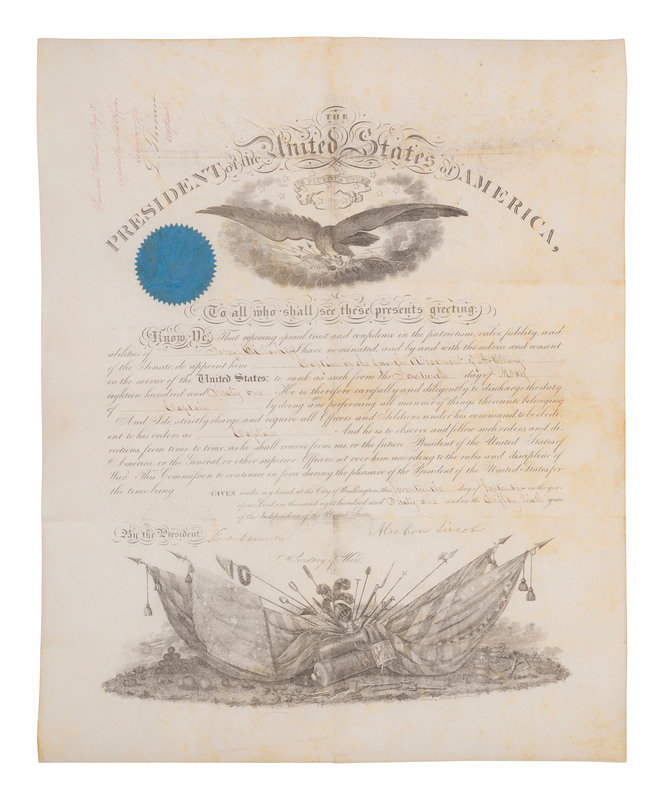 THE
PRESIDENT of the United States of AMERICA,
To all who shall see these presents greeting:
Know Ye, That reposing special trust and confidence in the patriotism, valor, fidelity, and
abilities of have nominated, and by and with the advice and consent
of the Senate do appoint him Captain in the of Artillery
in the service of the United States: to rank as such from the day of May
eighteen hundred and Sixty one He is therefore carefully and diligently to discharge the duty
of Captain by doing and performing all manner of things thereunto belonging
And I do strictly charge and require all Officers and Soldiers under his command to be obedi-
ent to his orders as Captain And he is to observe and follow such orders, and di-
rections, from time to time, as he shall receive from me, or the future President of the United States of
America, or the General or other superior Officers set over him, according to the rules and discipline of
War. This Commission to continue in force during the pleasure of the President of the United States, for
the time being
GIVEN under my hand, at the City of Washington, the day of September in the year
of our Lord, one thousand eight hundred and Sixty one and in the Eighty sixth year
of the Independence of the United States.
By the President Simon Cameron Abraham Lincoln
Secretary of War.
10